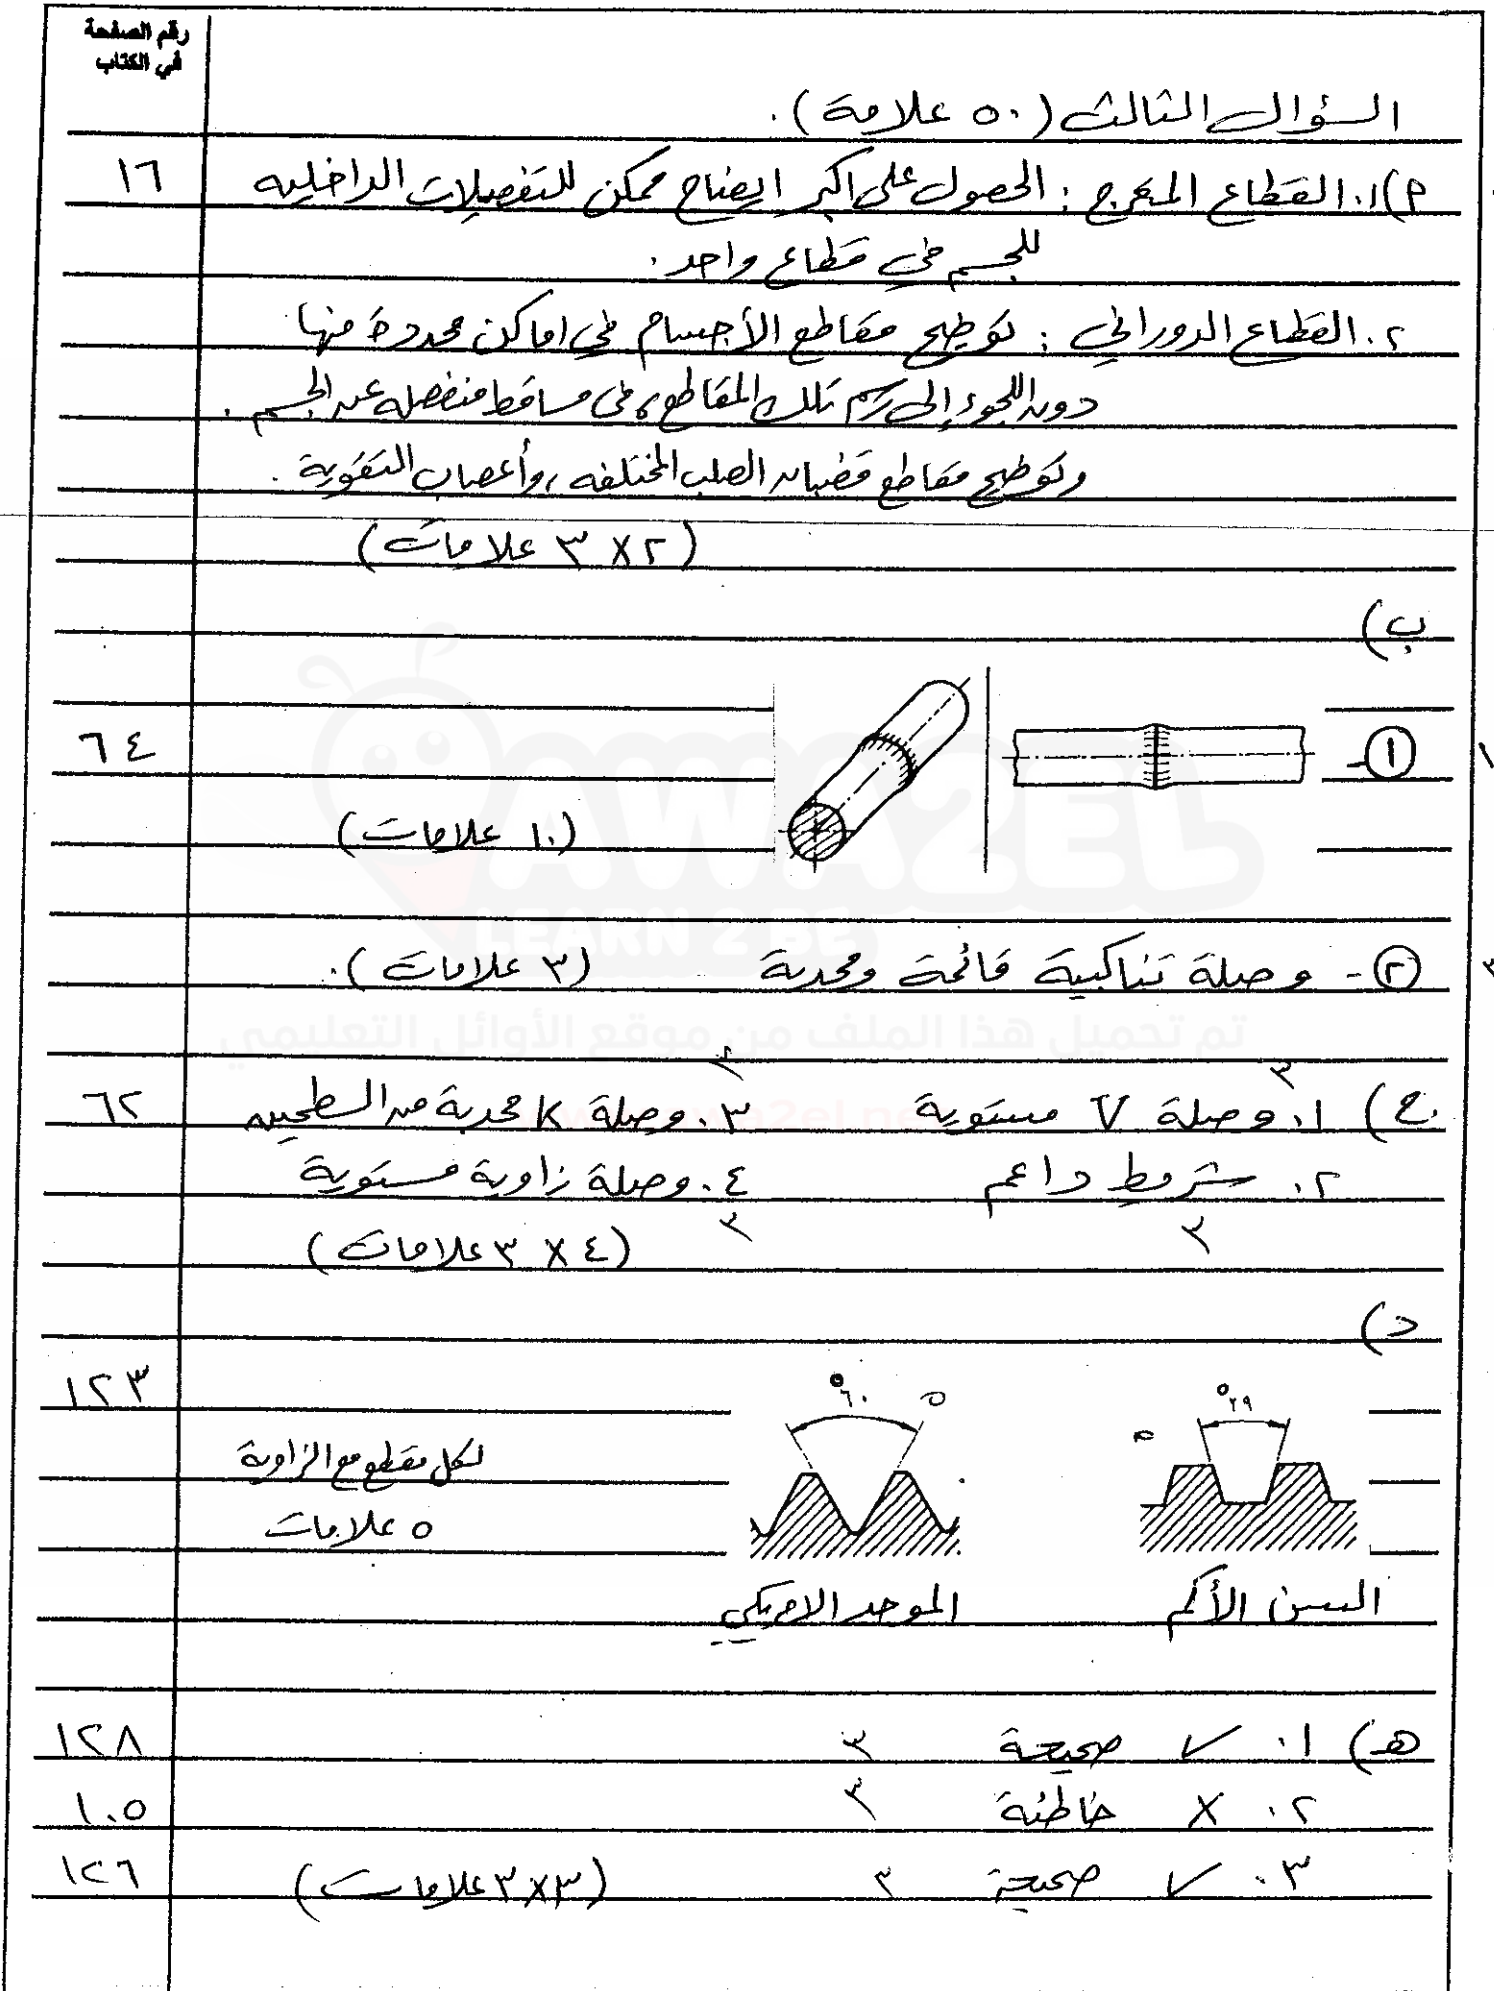 رقم الصفحة
في الكتاب
السؤال الثالث (٥٠ علامة).
١٦
أ) ١. القطاع المتعرج : الحصول على اكبر ايضاح ممكن للتفصيلات الداخلية
للجسم في قطاع واحد.
٢. القطاع الدوراني : توضيح مقاطع الأجسام في اماكن محددة منها
دون اللجوء إلى رسم تلك المقاطع، في مساقط منفصلة عن الجسم.
وتوضيح مقاطع قضبان الصلب المختلفه، وأعصاب التقوية.
(٢ × ٣ علامات)
ب)
٦٤
١ -
(١٠ علامات)
٢ - وصلة تناكبية قائمة ومحدبة (٣ علامات).
AWA2EL
LEARN 2 BE
تم تحميل هذا الملف من موقع الأوائل التعليمي
٣ ٣
٦٢
ج) ١. وصلة V مستوية ٣. وصلة K محدبة من السطحين
٢. شريط داعم ٤. وصلة زاوية مستوية
٣ ٣
(٤ × ٣ علامات)
د)
١٢٣
٢٩° ٦٠° ٥
٥
لكل مقطع مع الزاوية
٥ علامات
السن الأكم الموحد الامريكي
١٢٨
هـ) ١. ✓ صحيحة ٣
١٠٥
٢. X خاطئة ٣
١٢٦
٣. ✓ صحيحة ٣ (٣×٣ علامات)